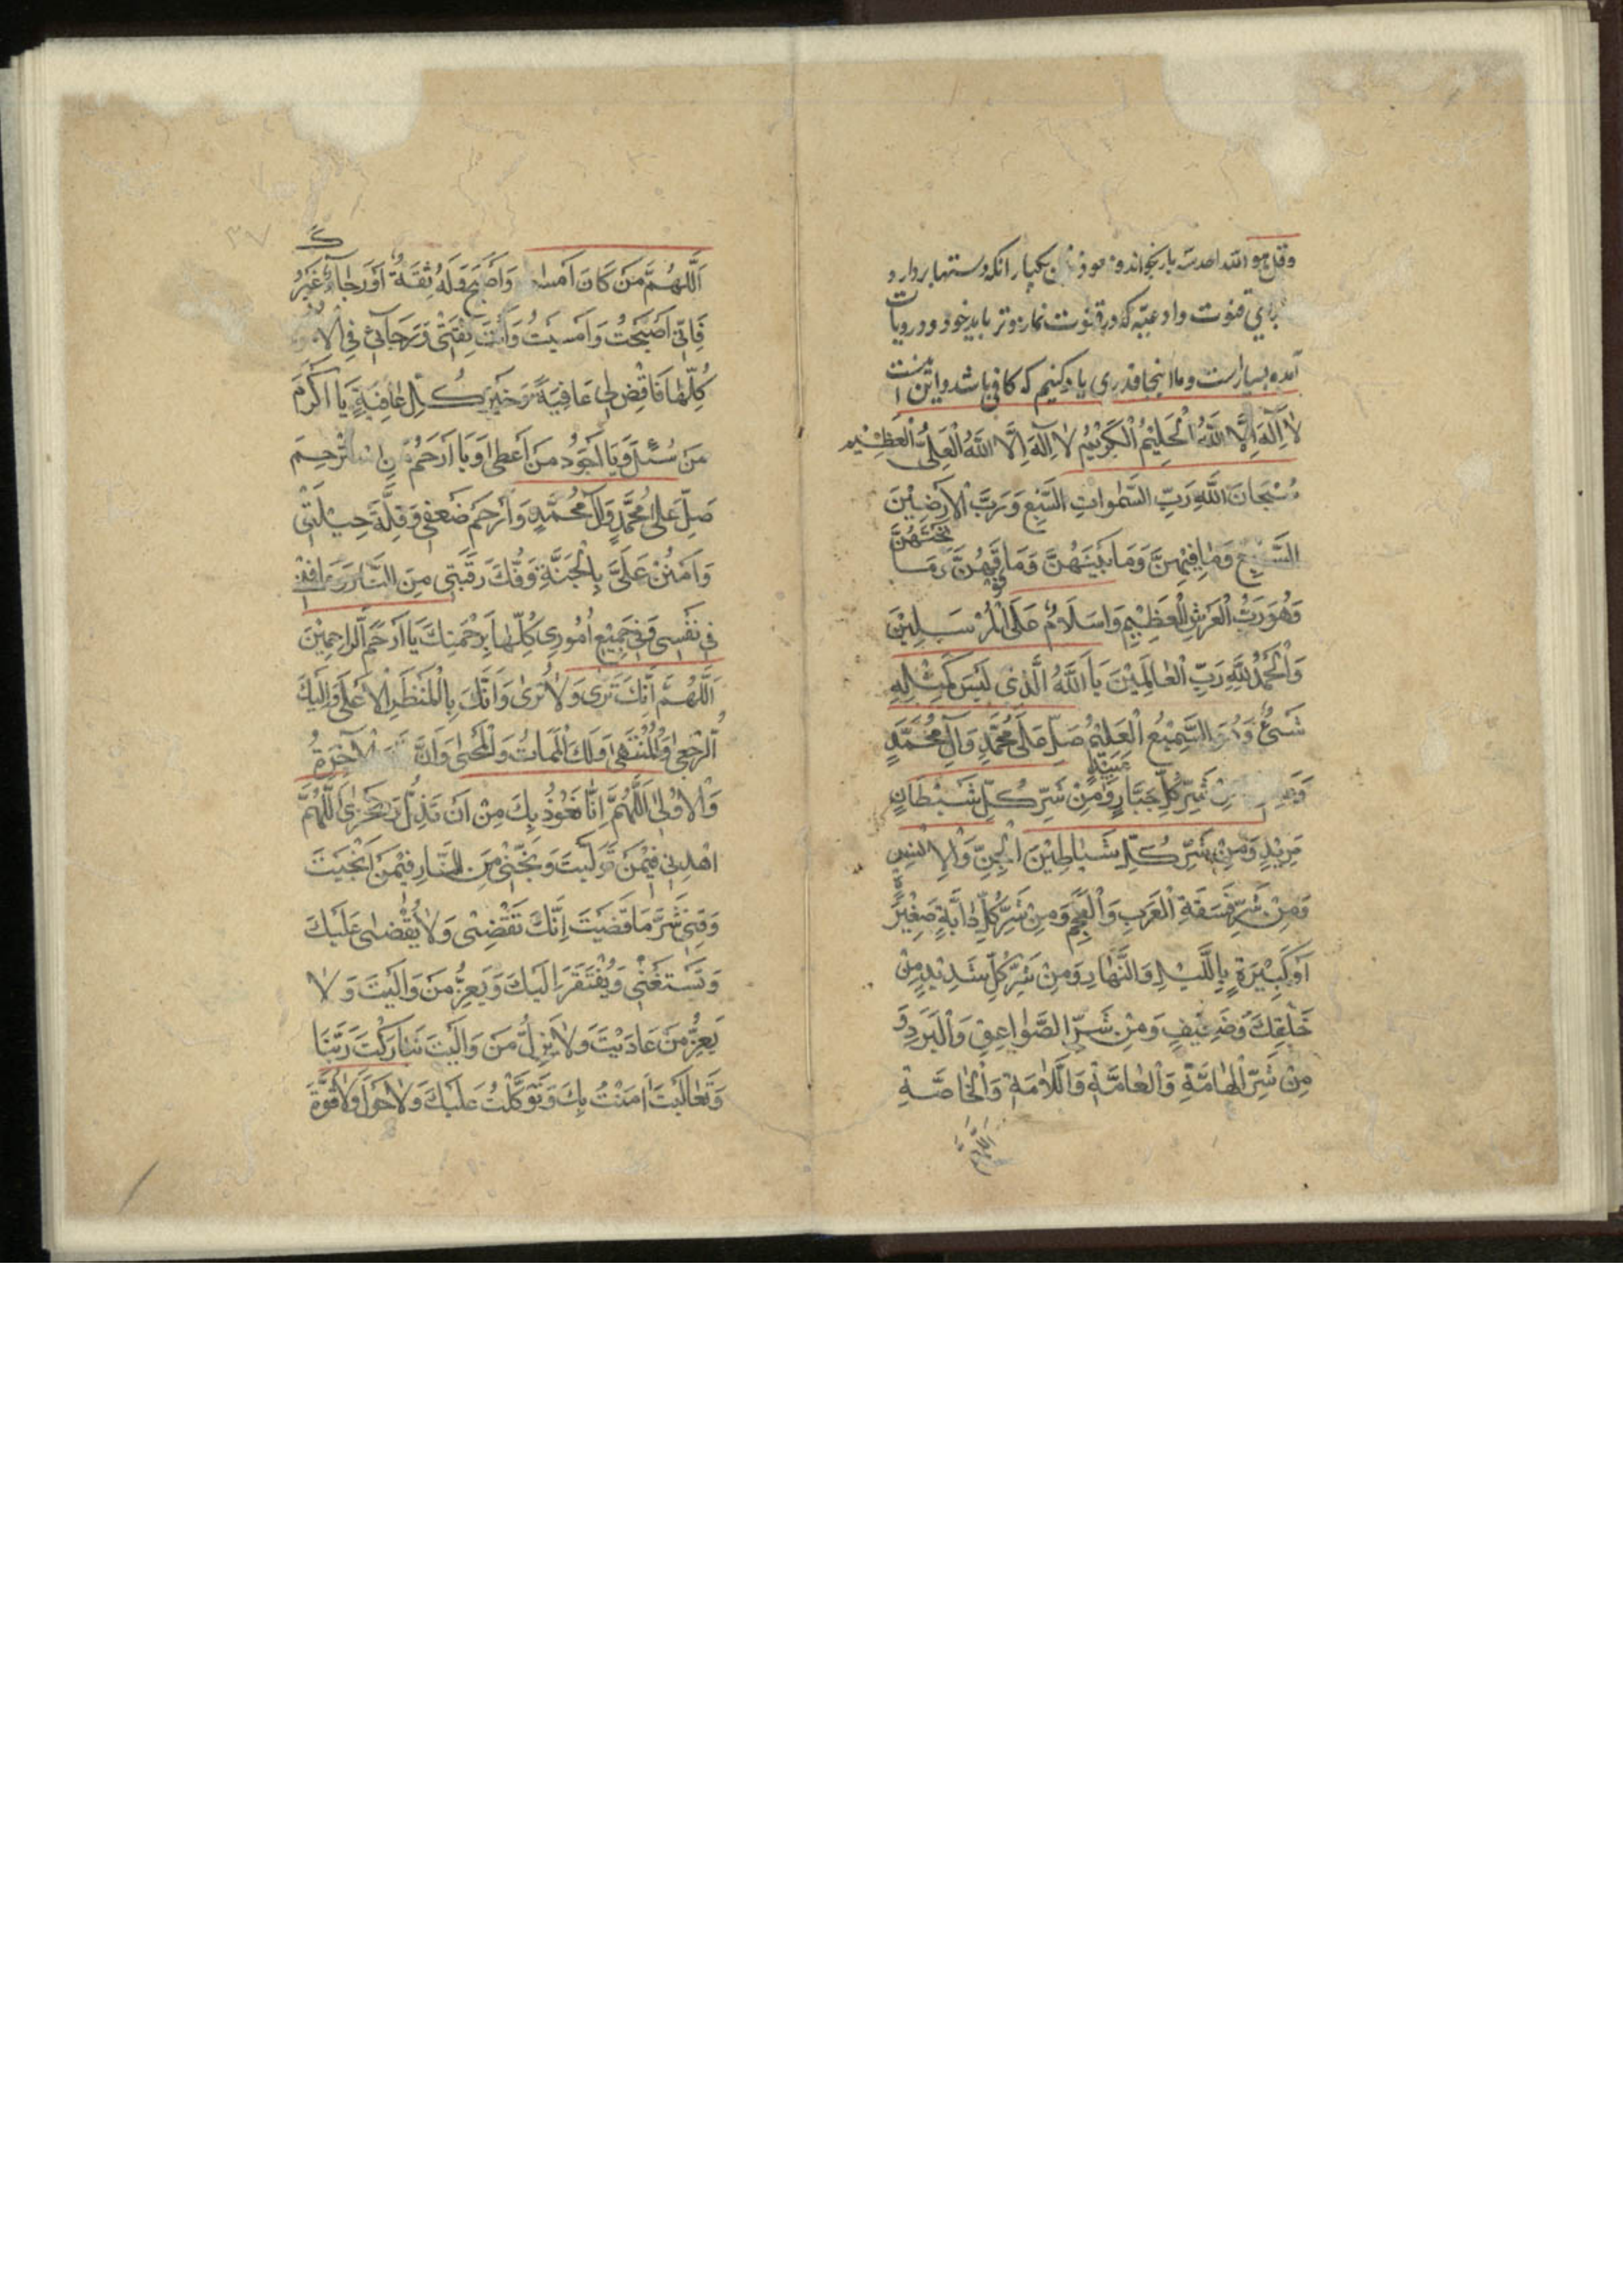 وقل هو الله احد سه بار بخواند و معوذ ن یکبار انکه دستها بردارد
برای قنوت و ادعیّه که در قنوت نماز وتر باید خود و در روایات
آمده بسیار است و ما اینجا قدری یاد کنیم که کافی باشد و این است
لا اِلهَ اِلَّا اللهُ الْحَلِيْمُ الْكَرِيْمُ لا اِلهَ اِلَّا اللهُ الْعَلِىُّ الْعَظِيْم
سُبْحَانَ اللهِ رَبِّ السَّمٰوَاتِ السَّبْعِ وَرَبِّ الْاَرَضِيْنَ
السَّبْعِ وَمَا فِيْهِنَّ وَمَا بَيْنَهُنَّ وَمَا فَوْقَهُنَّ وَمَا تَحْتَهُنَّ
وَهُوَ رَبُّ الْعَرْشِ الْعَظِيْمِ وَاسَلَامٌ عَلَى الْمُرْسَلِيْنَ
وَالْحَمْدُ لِلّٰهِ رَبِّ الْعَالَمِيْنَ يَا اَللهُ الَّذِى لَيْسَ كَمِثْلِهِ
شَىْءٌ وَهُوَ السَّمِيْعُ الْعَلِيْمُ صَلِّ عَلَى مُحَمَّدٍ وَآلِ مُحَمَّدٍ
مِنْ شَرِّ كُلِّ جَبَّارٍ عَنِيْدٍ وَمِنْ شَرِّ كُلِّ شَيْطَانٍ
مَرِيْدٍ وَمِنْ شَرِّ كُلِّ شَيَاطِيْنَ الْجِنِّ وَالْاِنْسِ
وَمِنْ شَرِّ فَسَقَةِ الْعَرَبِ وَالْعَجَمِ وَمِنْ شَرِّ كُلِّ دَابَّةٍ صَغِيْرَةٍ
اَوْ كَبِيْرَةٍ بِاللَّيْلِ وَالنَّهَارِ وَمِنْ شَرِّ كُلِّ شَدِيْدٍ مِنْ
خَلْقِكَ وَضَعِيْفٍ وَمِنْ شَرِّ الصَّوَاعِقِ وَالْبَرَدِ وَ
مِنْ شَرِّ الْهَامَّةِ وَالْعَامَّةِ وَاللَّامَّةِ وَالْخَاصَّةِ
اَللّٰهُمَّ
٣٧
اَللّٰهُمَّ مَنْ كَانَ اَمْسٰى وَاَصْبَحَ وَلَهُ ثِقَةٌ اَوْ رَجَاءٌ غَيْرُكَ
فَاِنّى اَصْبَحْتُ وَاَمْسَيْتُ وَاَنْتَ ثِقَتِىْ وَرَجَائِى فِى الْاُمُورِ
كُلِّهَا فَاقْضِ لِى عَافِيَةً وَخَيْرَ كُلِّ عَافِيَةٍ يَا اَكْرَمَ
مَنْ سُئِلَ وَيَا اَجْوَدُ مَنْ اَعْطٰى وَيَا اَرْحَمُ مَنِ اسْتُرْحِمَ
صَلِّ عَلٰى مُحَمَّدٍ وَآلِ مُحَمَّدٍ وَارْحَمْ ضَعْفِى وَقِلَّةَ حِيْلَتِىْ
وَامْنُنْ عَلَىَّ بِالْجَنَّةِ وَفُكَّ رَقَبَتِى مِنَ النَّارِ وَعَافِنِى
فِى نَفْسِى وَفِى جَمِيْعِ اُمُورِى كُلِّهَا بِرَحْمَتِكَ يَا اَرْحَمَ الرَّاحِمِيْنَ
اَللّٰهُمَّ اِنَّكَ تَرٰى وَلَا تُرٰى وَاَنْتَكَ بِالْمَنْظَرِ الْاَعْلَى وَاِلَيْكَ
الرُّجْعٰى وَالْمُنْتَهٰى وَلَكَ الْمَمَاتُ وَالْمَحْيٰى وَاَنَّ لَكَ الْآخِرَةُ
وَالْاُوْلٰى اَللّٰهُمَّ اِنَّا نَعُوْذُ بِكَ مِنْ اَنْ نَذِلَّ وَنَخْزٰى اَللّٰهُمَّ
اهْدِنِى فِيْمَنْ وَلَّيْتَ وَنَجِّنِىْ مِنَ النَّارِ فِيْمَنْ اَنْجَيْتَ
وَقِنِى شَرَّ مَا قَضَيْتَ اِنَّكَ تَقْضِىْ وَلَا يُقْضٰى عَلَيْكَ
وَتَسْتَغْنِى وَيُفْتَقَرُ اِلَيْكَ وَيَعِزُّ مَنْ وَالَيْتَ وَلَا
يَعِزُّ مَنْ عَادَيْتَ وَلَا يَذِلُّ مَنْ وَالَيْتَ تَبَارَكْتَ رَبَّنَا
وَتَعَالَيْتَ اٰمَنْتُ بِكَ وَتَوَكَّلْتُ عَلَيْكَ وَلَا حَوْلَ وَلَا قُوَّةَ